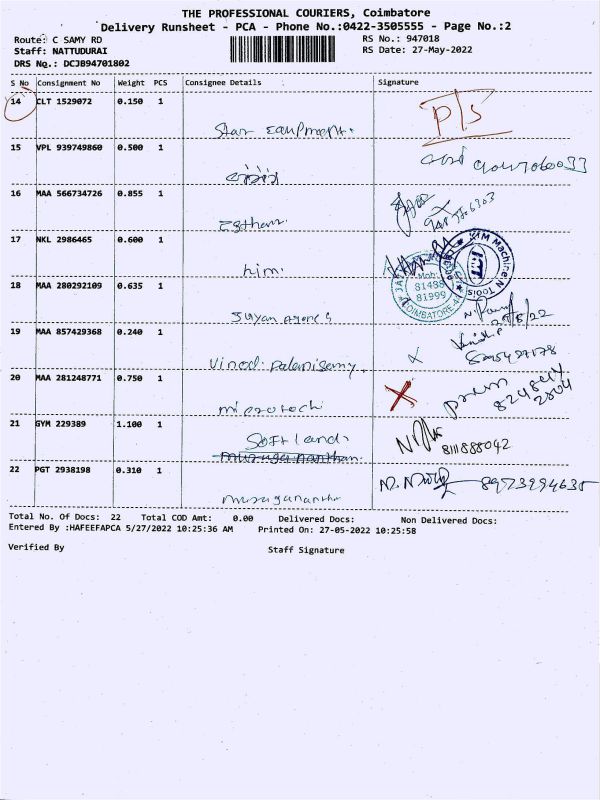 THE PROFESSIONAL COURIERS, Coimbatore
Delivery Runsheet - PCA - Phone No.:0422-3505555 - Page No.:2
Route: C SAMY RD
RS No.: 947018
Staff: NATTUDURAI
RS Date: 27-May-2022
DRS No.: DCJB94701802
S No Consignment No Weight PCS Consignee Details Signature
14 CLT 1529072 0.150 1
P/S
15 VPL 939749860 0.500 1
16 MAA 566734726 0.855 1
17 NKL 2986465 0.600 1
him.
KTM Machine N Tools
Mob:
81488
81999
COIMBATORE
18 MAA 280292109 0.635 1
19 MAA 857429368 0.240 1
Vinod. Palanisamy
20 MAA 281248771 0.750 1
microtech
21 GYM 229389 1.100 1
Softland.
8111888042
22 PGT 2938198 0.310 1
8973994635
Total No. Of Docs: 22 Total COD Amt: 0.00 Delivered Docs: Non Delivered Docs:
Entered By :HAFEEFAPCA 5/27/2022 10:25:36 AM Printed On: 27-05-2022 10:25:58
Verified By Staff Signature